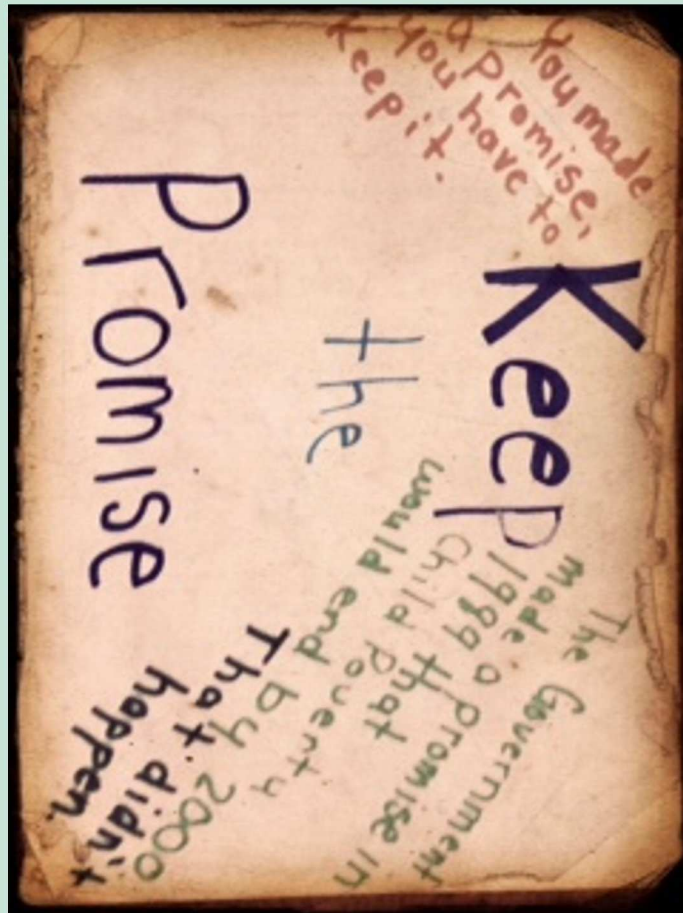 You made
a promise,
you have to
keep it.
Keep
the
Promise
The Government
made a promise in
1989 that
Child Poverty
would end by 2000
That didn't
happen.